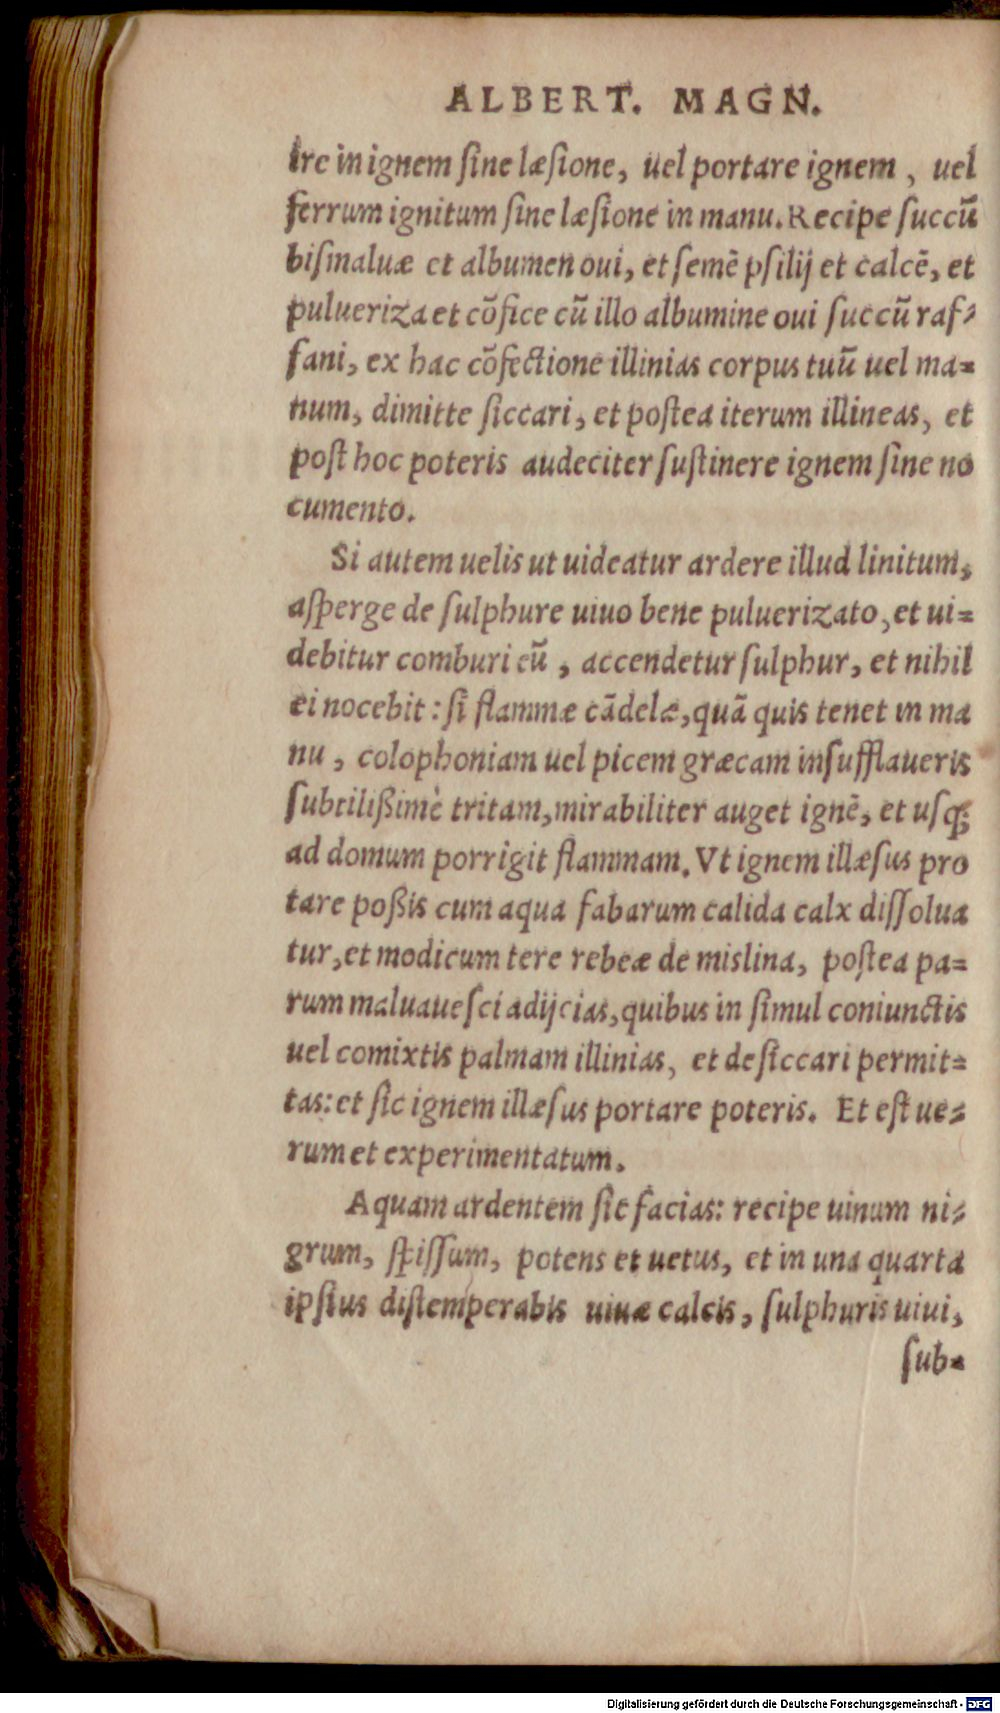 ALBERT. MAGN.
ire in ignem ſine læſione, uel portare ignem, uel
ferrum ignitum ſine læſione in manu. Recipe ſuccū
biſmaluæ et albumen oui, et ſemē pſilij et calcē, et
pulueriza et cōfice cū illo albumine oui ſuccū raf-
fani, ex hac cōfectione illinias corpus tuū uel ma=
num, dimitte ſiccari, et poſtea iterum illineas, et
poſt hoc poteris audeciter ſuſtinere ignem ſine no
cumento.
Si autem uelis ut uideatur ardere illud linitum,
aſperge de ſulphure uiuo bene puluerizato, et ui=
debitur comburi cū, accendetur ſulphur, et nihil
ei nocebit: ſi flammæ cādelæ, quā quis tenet in ma
nu, colophoniam uel picem græcam inſufflaueris
ſubtilißimè tritam, mirabiliter auget ignē, et uſq;
ad domum porrigit flammam. Vt ignem illæſus pro
tare poßis cum aqua fabarum calida calx diſſolua
tur, et modicum tere rebeæ de mislina, poſtea pa=
rum maluaueſci adijcias, quibus in ſimul coniunctis
uel comixtis palmam illinias, et deſiccari permit=
tas: et ſic ignem illæſus portare poteris. Et eſt ue=
rum et experimentatum.
Aquam ardentem ſic facias: recipe uinum ni=
grum, ſpiſſum, potens et uetus, et in una quarta
ipſius diſtemperabis uiuæ calcis, ſulphuris uiui,
ſub=
Digitalisierung gefördert durch die Deutsche Forschungsgemeinschaft - DFG